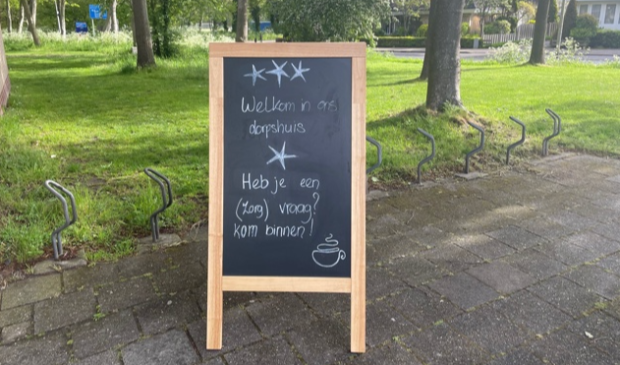 Welkom in ons
dorpshuis
Heb je een
(zorg) vraag?
kom binnen!